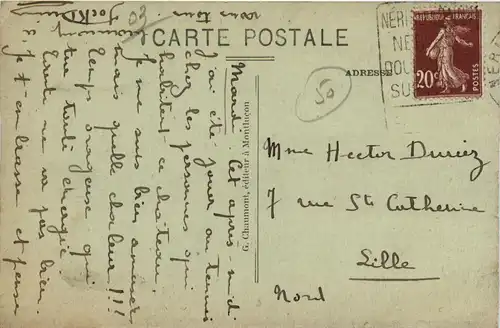 CARTE POSTALE
ADRESSE
RÉPUBLIQUE FRANÇAISE
20c
POSTES
NÉRI
NE
DOU
SU
03
50
Mardi. Cet après-midi
j'ai été jouer au tennis
chez les personnes qui
habitent ce château.
Je me suis bien amusée
mais quelle chaleur !!!
Temps orageux qui
tue toute énergie.
tante ne va pas bien.
Je t'embrasse et pense
à
vous tous
G. Chaumont, éditeur à Montluçon
Mme Hector Duriez
7 rue Ste Catherine
Lille
Nord